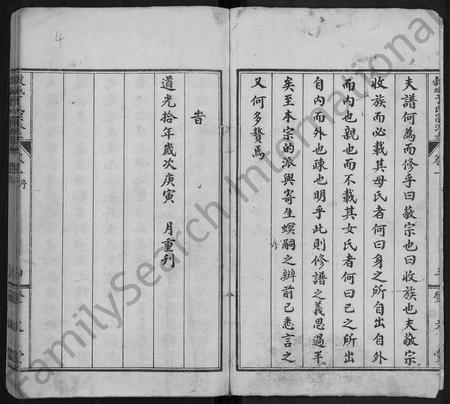 夫譜何為而修乎曰敬宗也曰收族也夫敬宗
收族而必載其母氏者何曰身之所自出自外
而内也親也而不載其女氏者何曰己之所出
自内而外也疎也明乎此則修譜之義思過半
矣至本宗的派與寄生螟嗣之辨前已悉言之
又何多贅焉
告
道光拾年歲次庚寅 月重刋
4
FamilySearch International